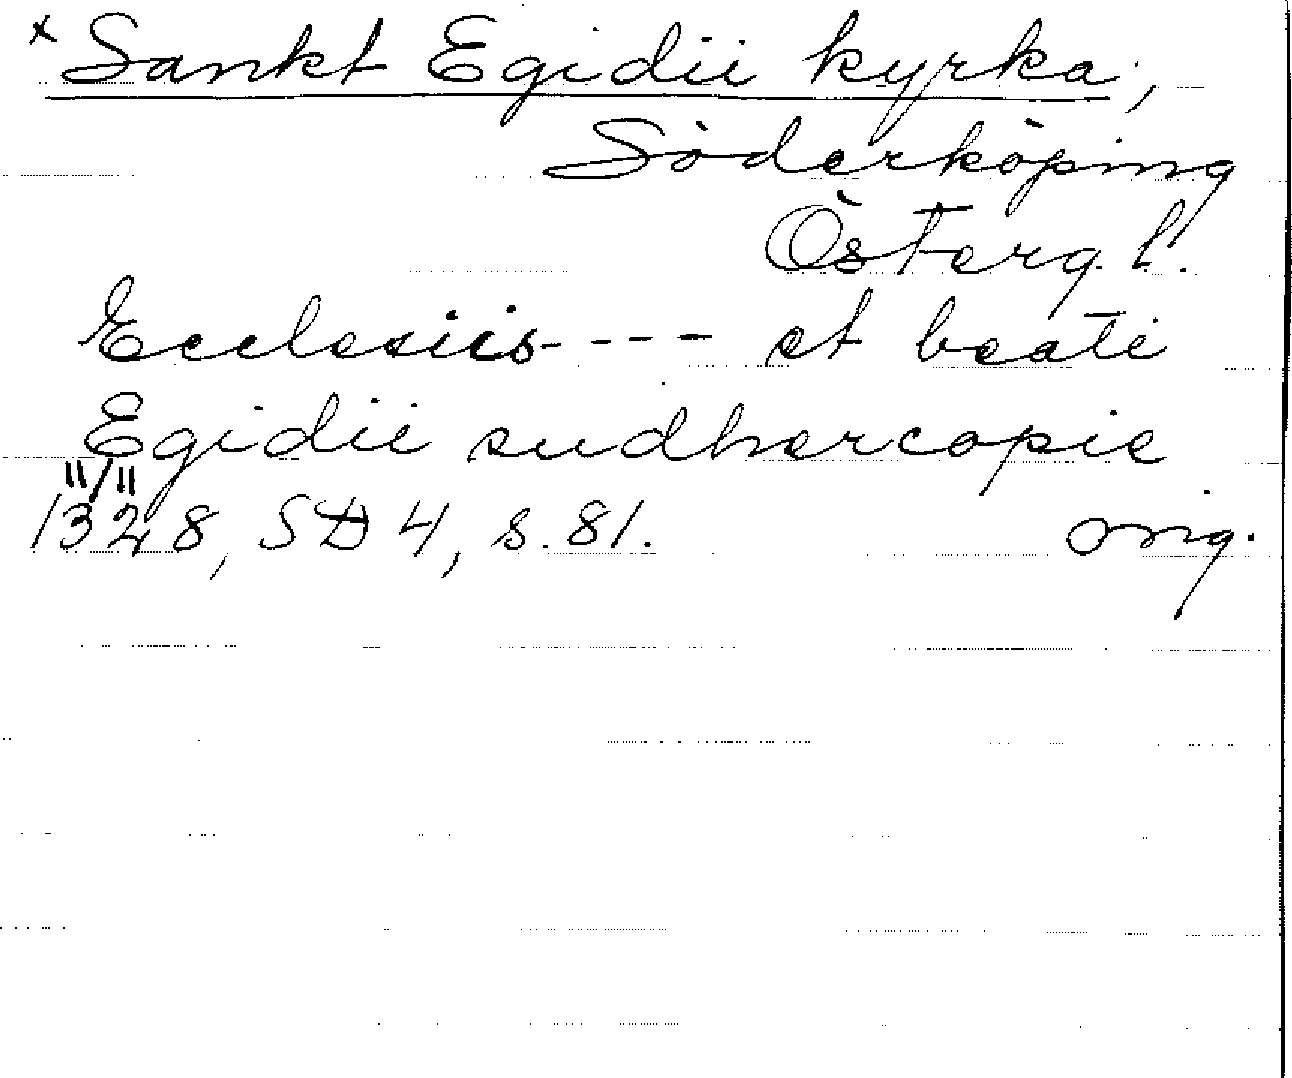 x Sankt Egidii kyrka,
Söderköping
Österg. l.
Ecclesiis---- et beati
Egidii sudhercopie
11/11
1328, SD 4, s. 81. orig.